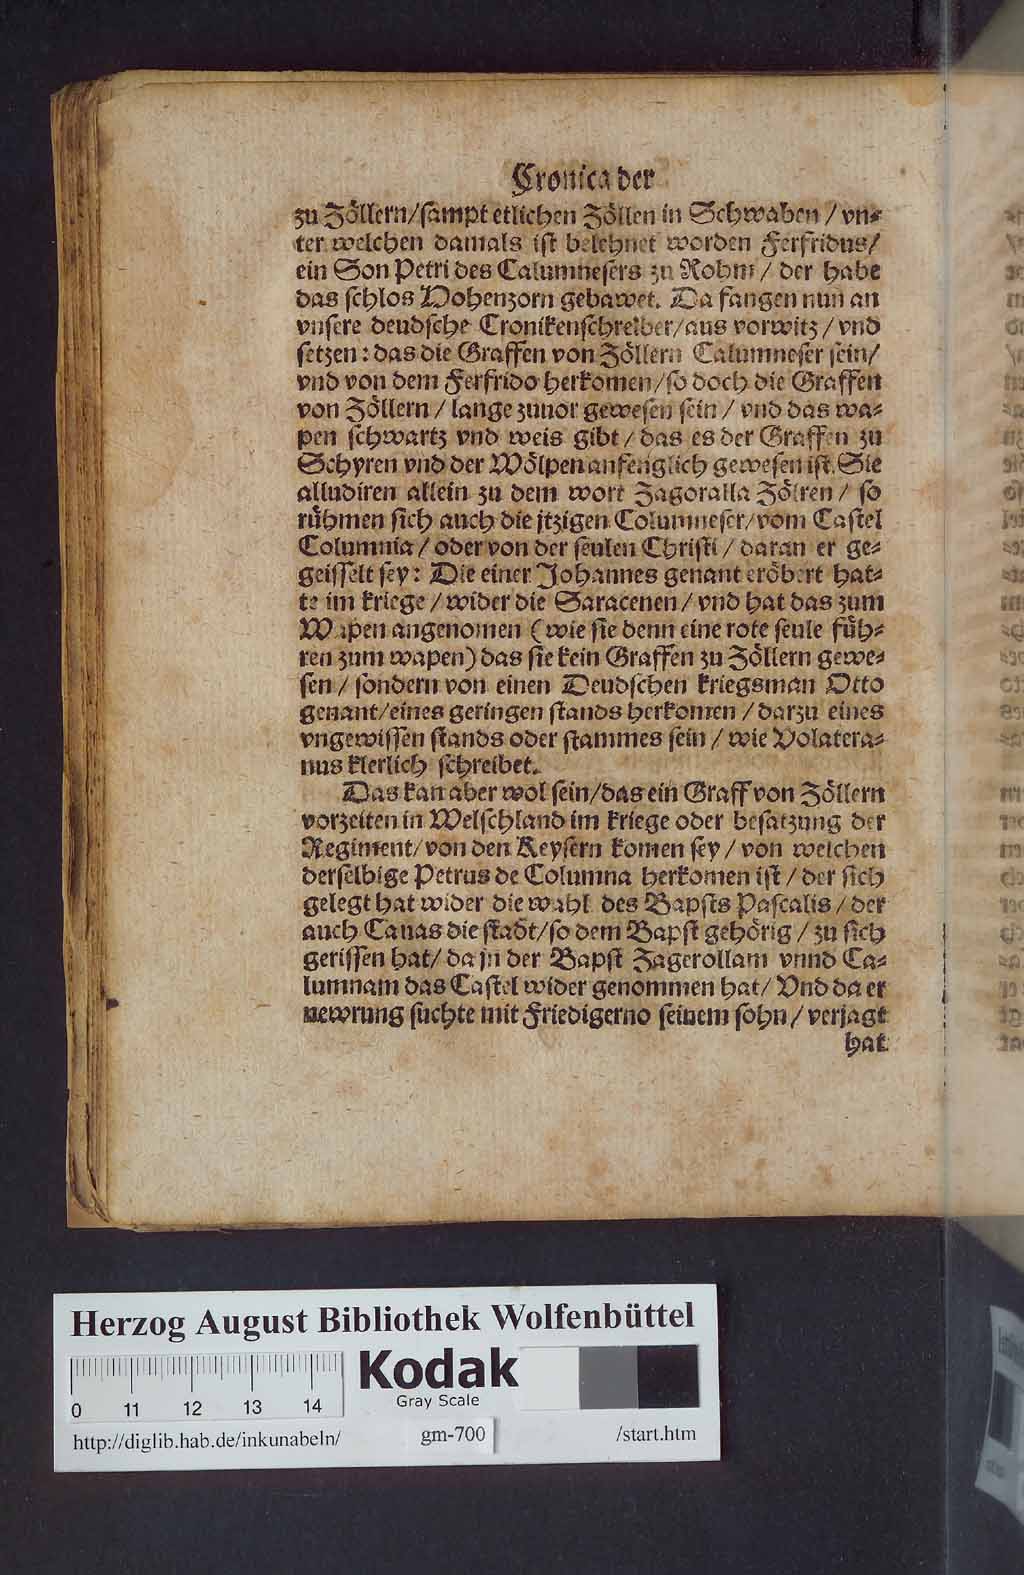 Cronica der
zu Zöllern/sampt etlichen Zöllen in Schwaben / vn⸗
ter welchen damals ist belehnet worden Ferfridus/
ein Son Petri des Calumnesers zu Rohm / der habe
das schlos Hohenzorn gebawet. Da fangen nun an
vnsere deudsche Cronikenschreiber/aus vorwitz / vnd
setzen: das die Graffen von Zöllern Calumneser sein/
vnd von dem Ferfrido herkomen/so doch die Graffen
von Zöllern / lange zuuor gewesen sein / vnd das wa⸗
pen schwartz vnd weis gibt / das es der Graffen zu
Schyren vnd der Wölpen anfenglich gewesen ist. Sie
alludiren allein zu dem wort Zagoralla Zölren / so
rühmen sich auch die jtzigen Columneser/vom Castel
Columnia / oder von der seulen Christi / daran er ge⸗
geisselt sey: Die einer Johannes genant eröbert hat⸗
te im kriege / wider die Saracenen / vnd hat das zum
Wapen angenomen (wie sie denn eine rote seule füh⸗
ren zum wapen) das sie kein Graffen zu Zöllern gewe⸗
sen / sondern von einen Deudschen kriegsman Otto
genant/eines geringen stands herkomen / darzu eines
vngewissen stands oder stammes sein / wie Volatera⸗
nus klerlich schreibet.
Das kan aber wol sein/das ein Graff von Zöllern
vorzeiten in Welschland im kriege oder besatzung der
Regiment/von den Keysern komen sey / von welchen
derselbige Petrus de Columna herkomen ist / der sich
gelegt hat wider die wahl des Bapsts Pascalis / der
auch Cauas die stadt/so dem Bapst gehörig / zu sich
gerissen hat/ da jn der Bapst Zagerollam vnnd Ca⸗
lumnam das Castel wider genommen hat/ Vnd da er
newrung suchte mit Friedigerno seinem sohn / verjagt
hat
Herzog August Bibliothek Wolfenbüttel
0 11 12 13 14
Kodak
Gray Scale
http://diglib.hab.de/inkunabeln/ gm-700 /start.htm